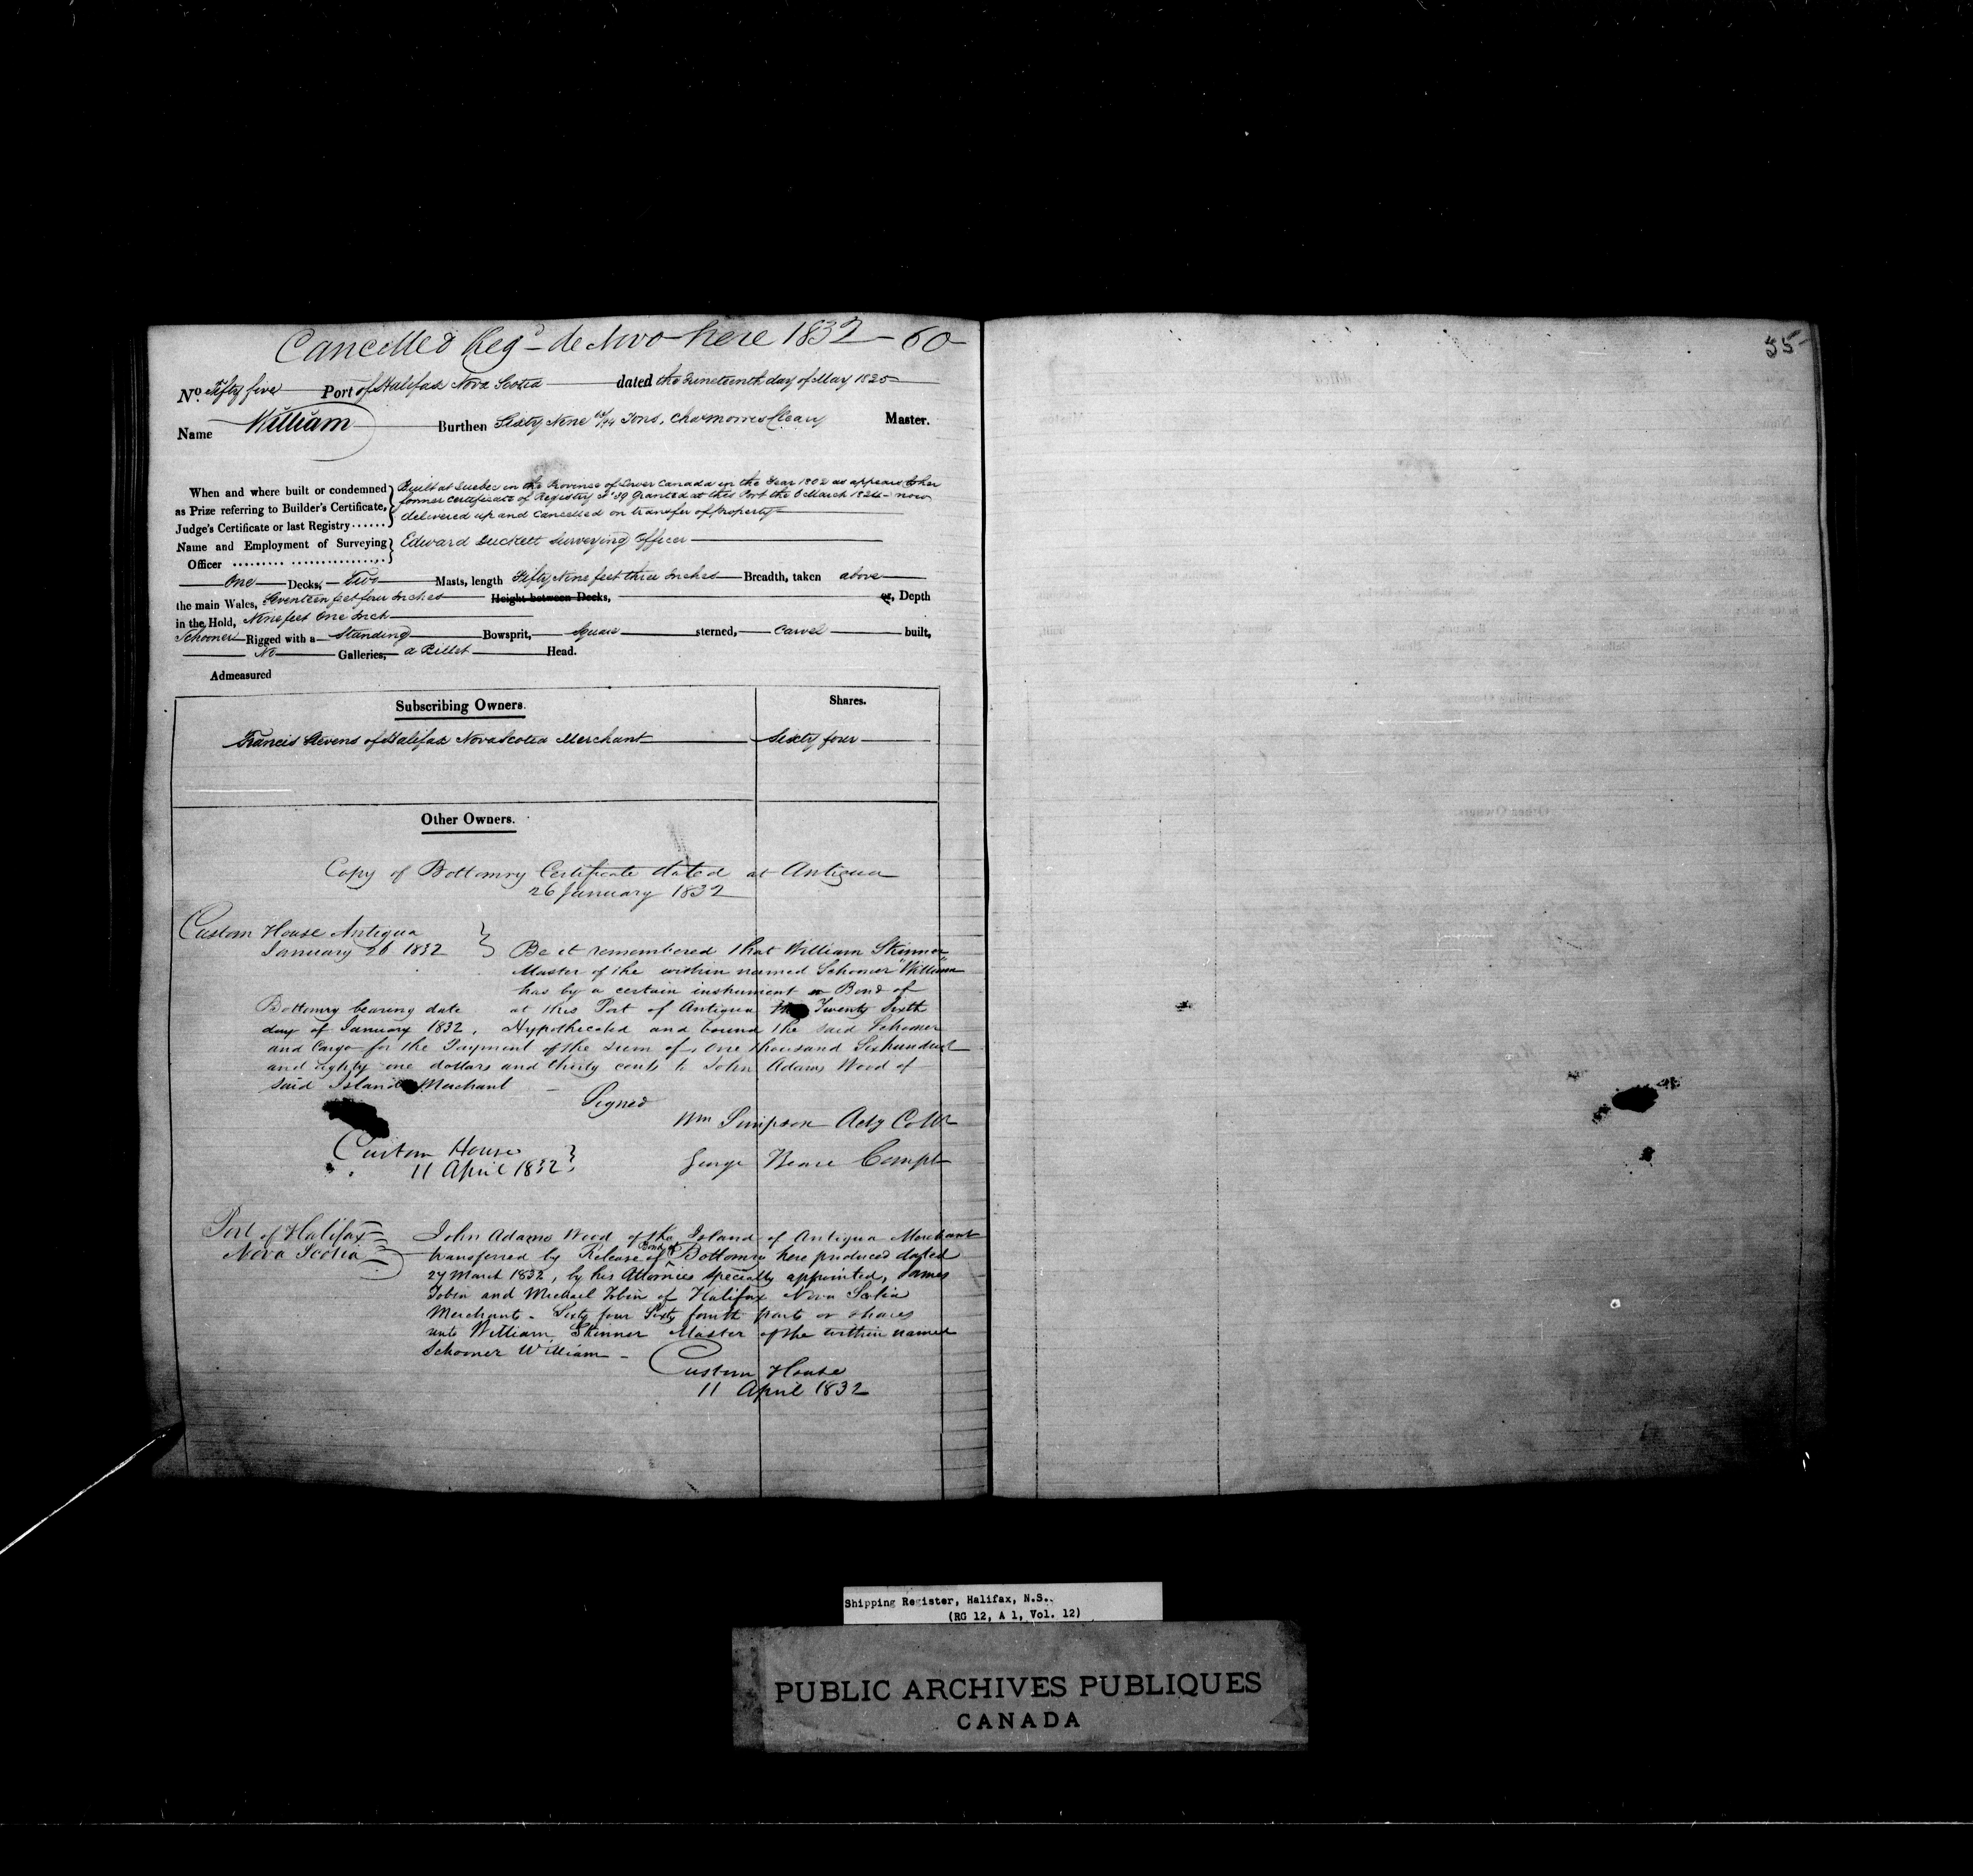 Cancelled Regd de Novo here 1832 - 60
55
No. Fifty five Port of Halifax Nova Scotia dated the Nineteenth day of May 1825
Name William Burthen Sixty Nine Tons, Master.
When and where built or condemned Built at Quebec in the Province of Lower Canada in the Year 1802 as appears to her
as Prize referring to Builder's Certificate, former Certificate of Registry No 39 Granted at this Port the 8 March 1824 now
Judge's Certificate or last Registry ...... delivered up and Cancelled on transfer of Property
Name and Employment of Surveying Edward Duckett Surveying Officer
Officer ......... ...............
One Decks, Two Masts, length Fifty Nine feet three Inches Breadth, taken above
the main Wales, Seventeen feet four Inches Height between Decks, or, Depth
in the Hold, Nine feet One Inch
Schooner Rigged with a Standing Bowsprit, Square sterned, Carvel built,
No Galleries, a Billet Head.
Admeasured
Subscribing Owners. Shares.
Francis Stevens of Halifax Nova Scotia Merchant Sixty four
Other Owners.
Copy of Bottomry Certificate dated at Antigua
26 January 1832
Custom House Antigua
January 26 1832 Be it remembered that William Skinner
Master of the within named Schooner "William"
has by a certain instrument or Bond of
Bottomry bearing date at this Port of Antigua the Twenty Sixth
day of January 1832, Hypothecated and bound the said Schooner
and Cargo for the Payment of the sum of One thousand Six hundred
and eighty one dollars and thirty cents to John Adams Wood of
said Island Merchant
Signed
Wm Simpson Actg Collr
Custom House
11 April 1832 George Compr
Port of Halifax John Adams Wood of the Island of Antigua Merchant
Nova Scotia transferred by Release of Bond of Bottomry here produced dated
27 March 1832, by his Attornies specially appointed, James
Tobin and Michael Tobin of Halifax Nova Scotia
Merchants - Sixty four Sixty fourth parts or shares
unto William Skinner Master of the within named
Schooner William -
Custom House
11 April 1832
Shipping Register, Halifax, N.S.
(RG 12, A 1, Vol. 12)
PUBLIC ARCHIVES PUBLIQUES
CANADA